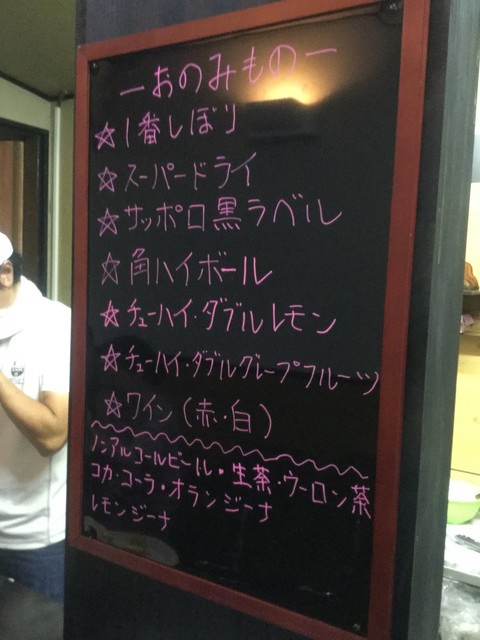 ーおのみものー
☆1番しぼり
☆スーパードライ
☆サッポロ黒ラベル
☆角ハイボール
☆チューハイ・ダブルレモン
☆チューハイ・ダブルグレープフルーツ
☆ワイン(赤・白)
ノンアルコールビール・生茶・ウーロン茶
コカ・コーラ・オランジーナ
レモンジーナ